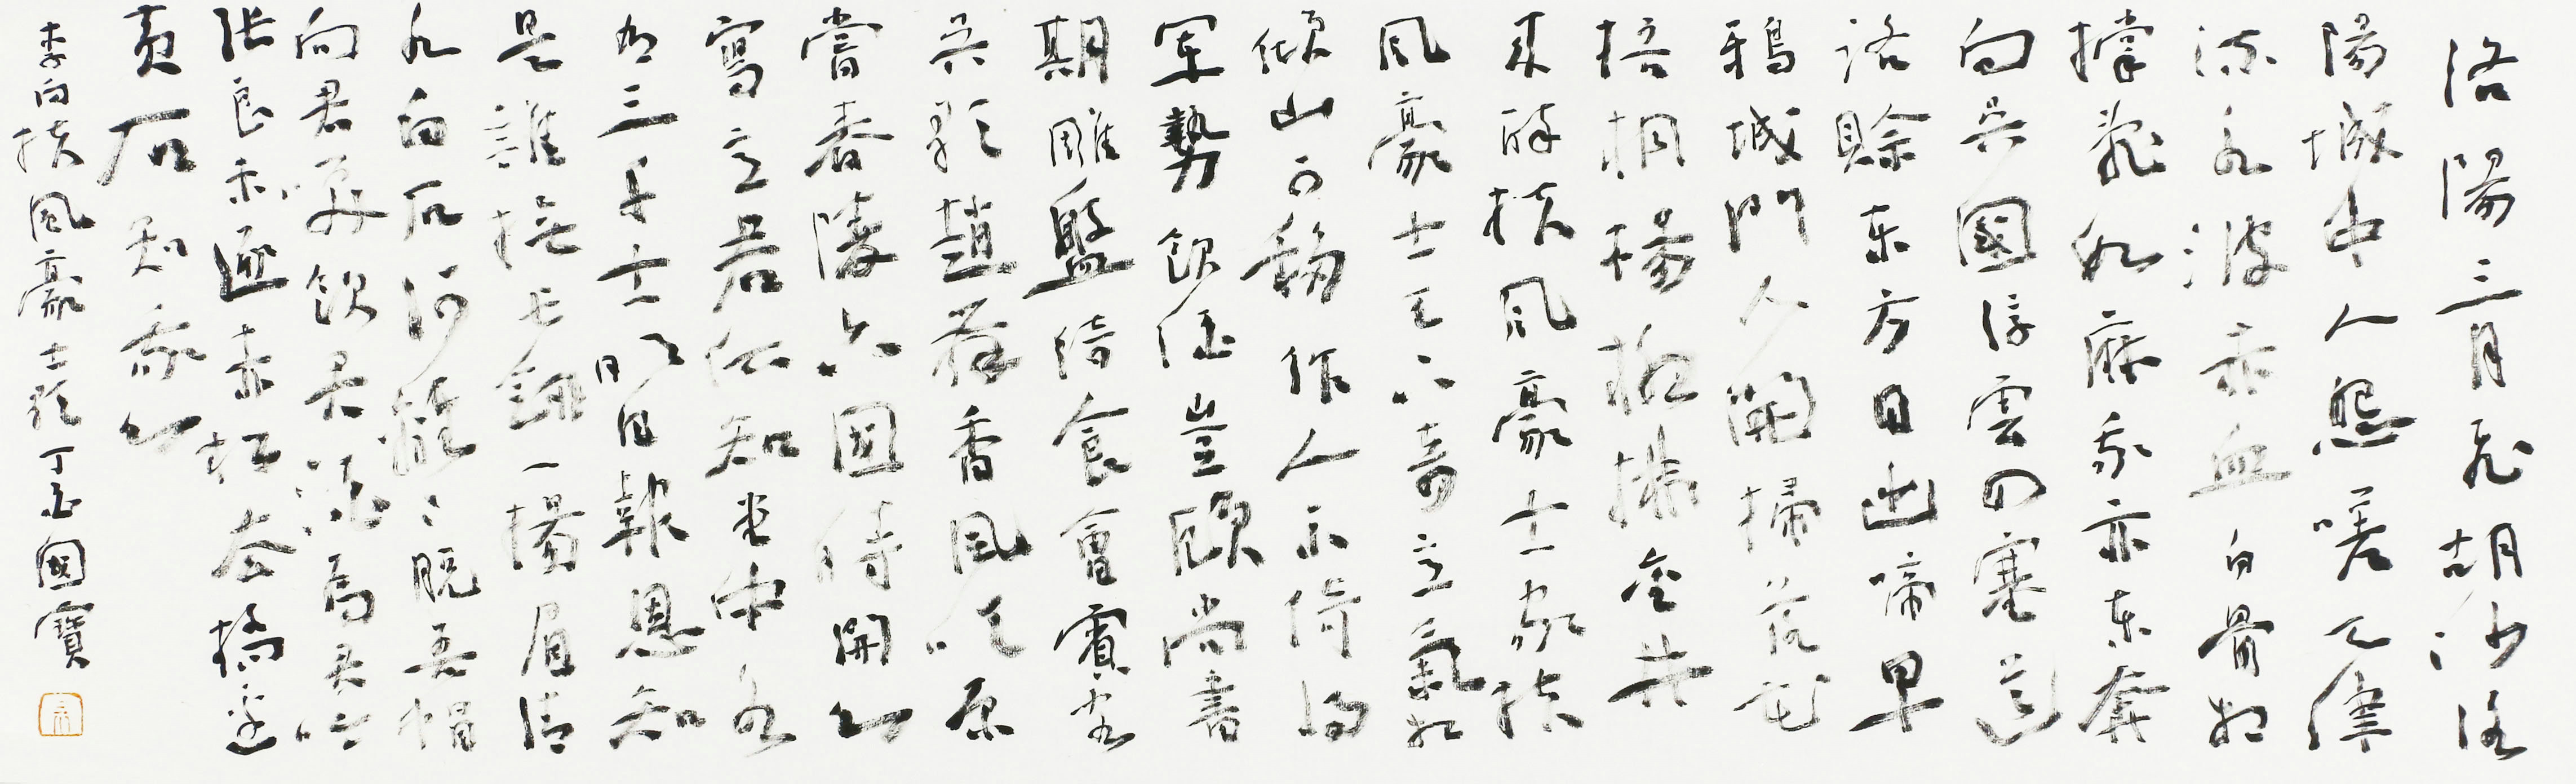 洛陽三月飛胡沙洛
陽城中人怨嗟天津
流水波赤血白骨相
撐亂如麻我亦東奔
向吳國浮雲四塞道
路賒東方日出啼早
鴉城門人開掃落花
梧桐楊柳拂金井
來醉扶風豪士家扶
風豪士天下奇意氣相
傾山可移作人不倚將
軍勢飲酒豈顧尚書
期雕盤綺食會賓客
吳歌趙舞香風吹原
嘗春陵六國時開心
寫意君所知堂中各
有三千士明日報恩知
是誰撫長劍一揚眉清
水白石何離々脫吾帽
向君笑飲君酒為君吟
張良未逐赤松去橋邊
黃石知我心
李白扶風豪士歌丁酉國寶